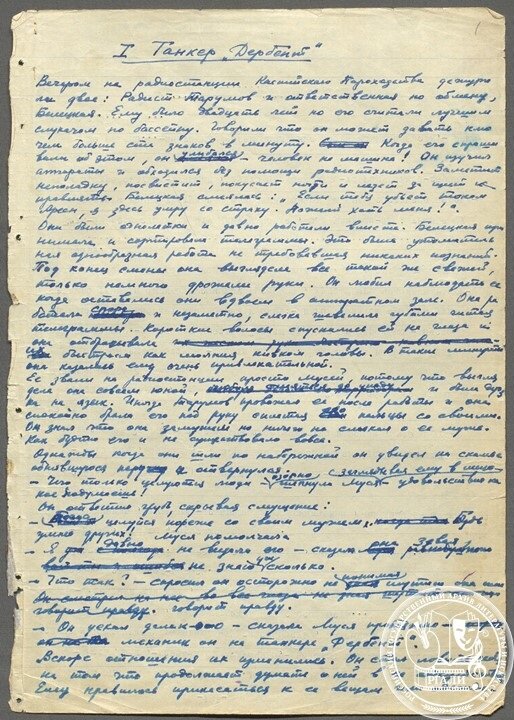 I Танкер „Дербент"
Вечером на радиостанции Каспийского пароходства дежури
ли двое: Радист Тарумов и ответственная по обмену,
Белецкая. Ему было двадцать лет но его считали лучшим
слухачом по бассейну. Говорили что он может давать клю
чем больше ста знаков в минуту. Когда его спраши
вали об этом, он улыбался – человек не машина! Он изучил
аппараты и обходился без помощи радиотехников. Заметит
неполадку, посвистит, покусает ногти и лезет за щит ис
правлять. Белецкая смеялась: „Если тебя убьет током
Арсен, я здесь умру со страху. Пожалей хоть меня!"
Они были однолетки и давно работали вместе. Белецкая при
нимала и сортировала телеграммы. Это была утомитель
ная однообразная работа не требовавшая никаких познаний.
Под конец смены она выглядела все такой же свежей,
только немного дрожали руки. Он любил наблюдать ее
когда оставались они вдвоем в аппаратном зале. Она ра
ботала и незаметно, слегка шевелила губами читая
телеграммы. Короткие волосы спускались ей на лицо и
она отбрасывала их
быстрым как молния кивком головы. В такие минуты
она казалась ему очень привлекательной.
Ее звали на радиостанции просто Мусей, потому что выгля
дела она совсем юной и была
на язык. Иногда Тарумов провожал ее после работы и она
спокойно брала его под руку сплетая пальцы со своими.
Он знал что она замужем но ничего не слыхал о ее муже.
Как будто его и не существовало вовсе.
Однажды когда они шли по набережной он увидел на скамье
обнявшуюся пару и отвернулся. озорно заглядывая ему в лицо
– Чего только целуются люди – шепнула Муся – удовольствие ка
кое подумаешь!
Он ответил грубо скрывая смущение:
– целуйся пореже со своим мужем, Будь
умнее других! Муся помолчала
– Я давно не видала его – сказала она
не знаю сколько.
– Что так? – спросил он осторожно не понимая шутит она или
говорит правду.
– Он уехал
механик он на танкере „Дербент"
Вскоре отношения их изменились. Он
на том что продолжает думать о ней в
Ему нравилось прикасаться к ее вещам
РГАЛИ